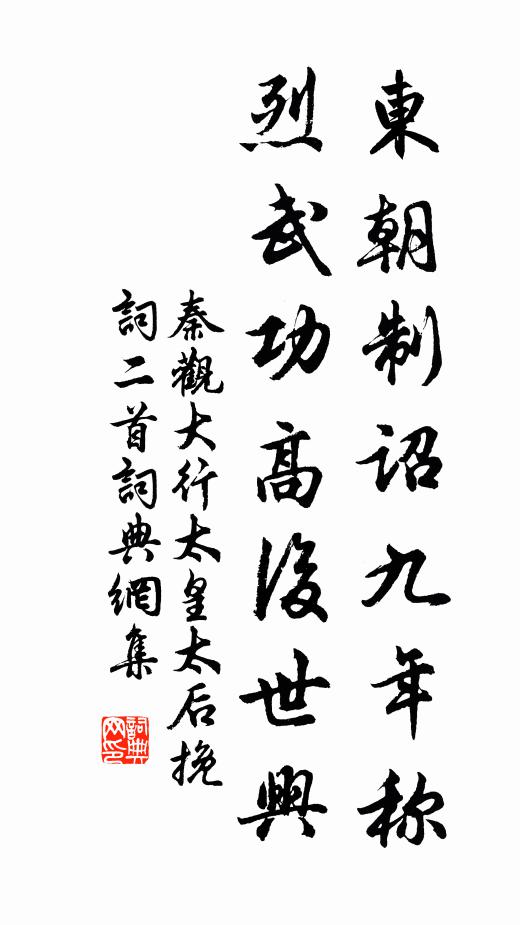 東朝制詔九年称
烈武功高後世興
秦觀大行太皇太后挽
詞二首詞典網集
詞典
网印